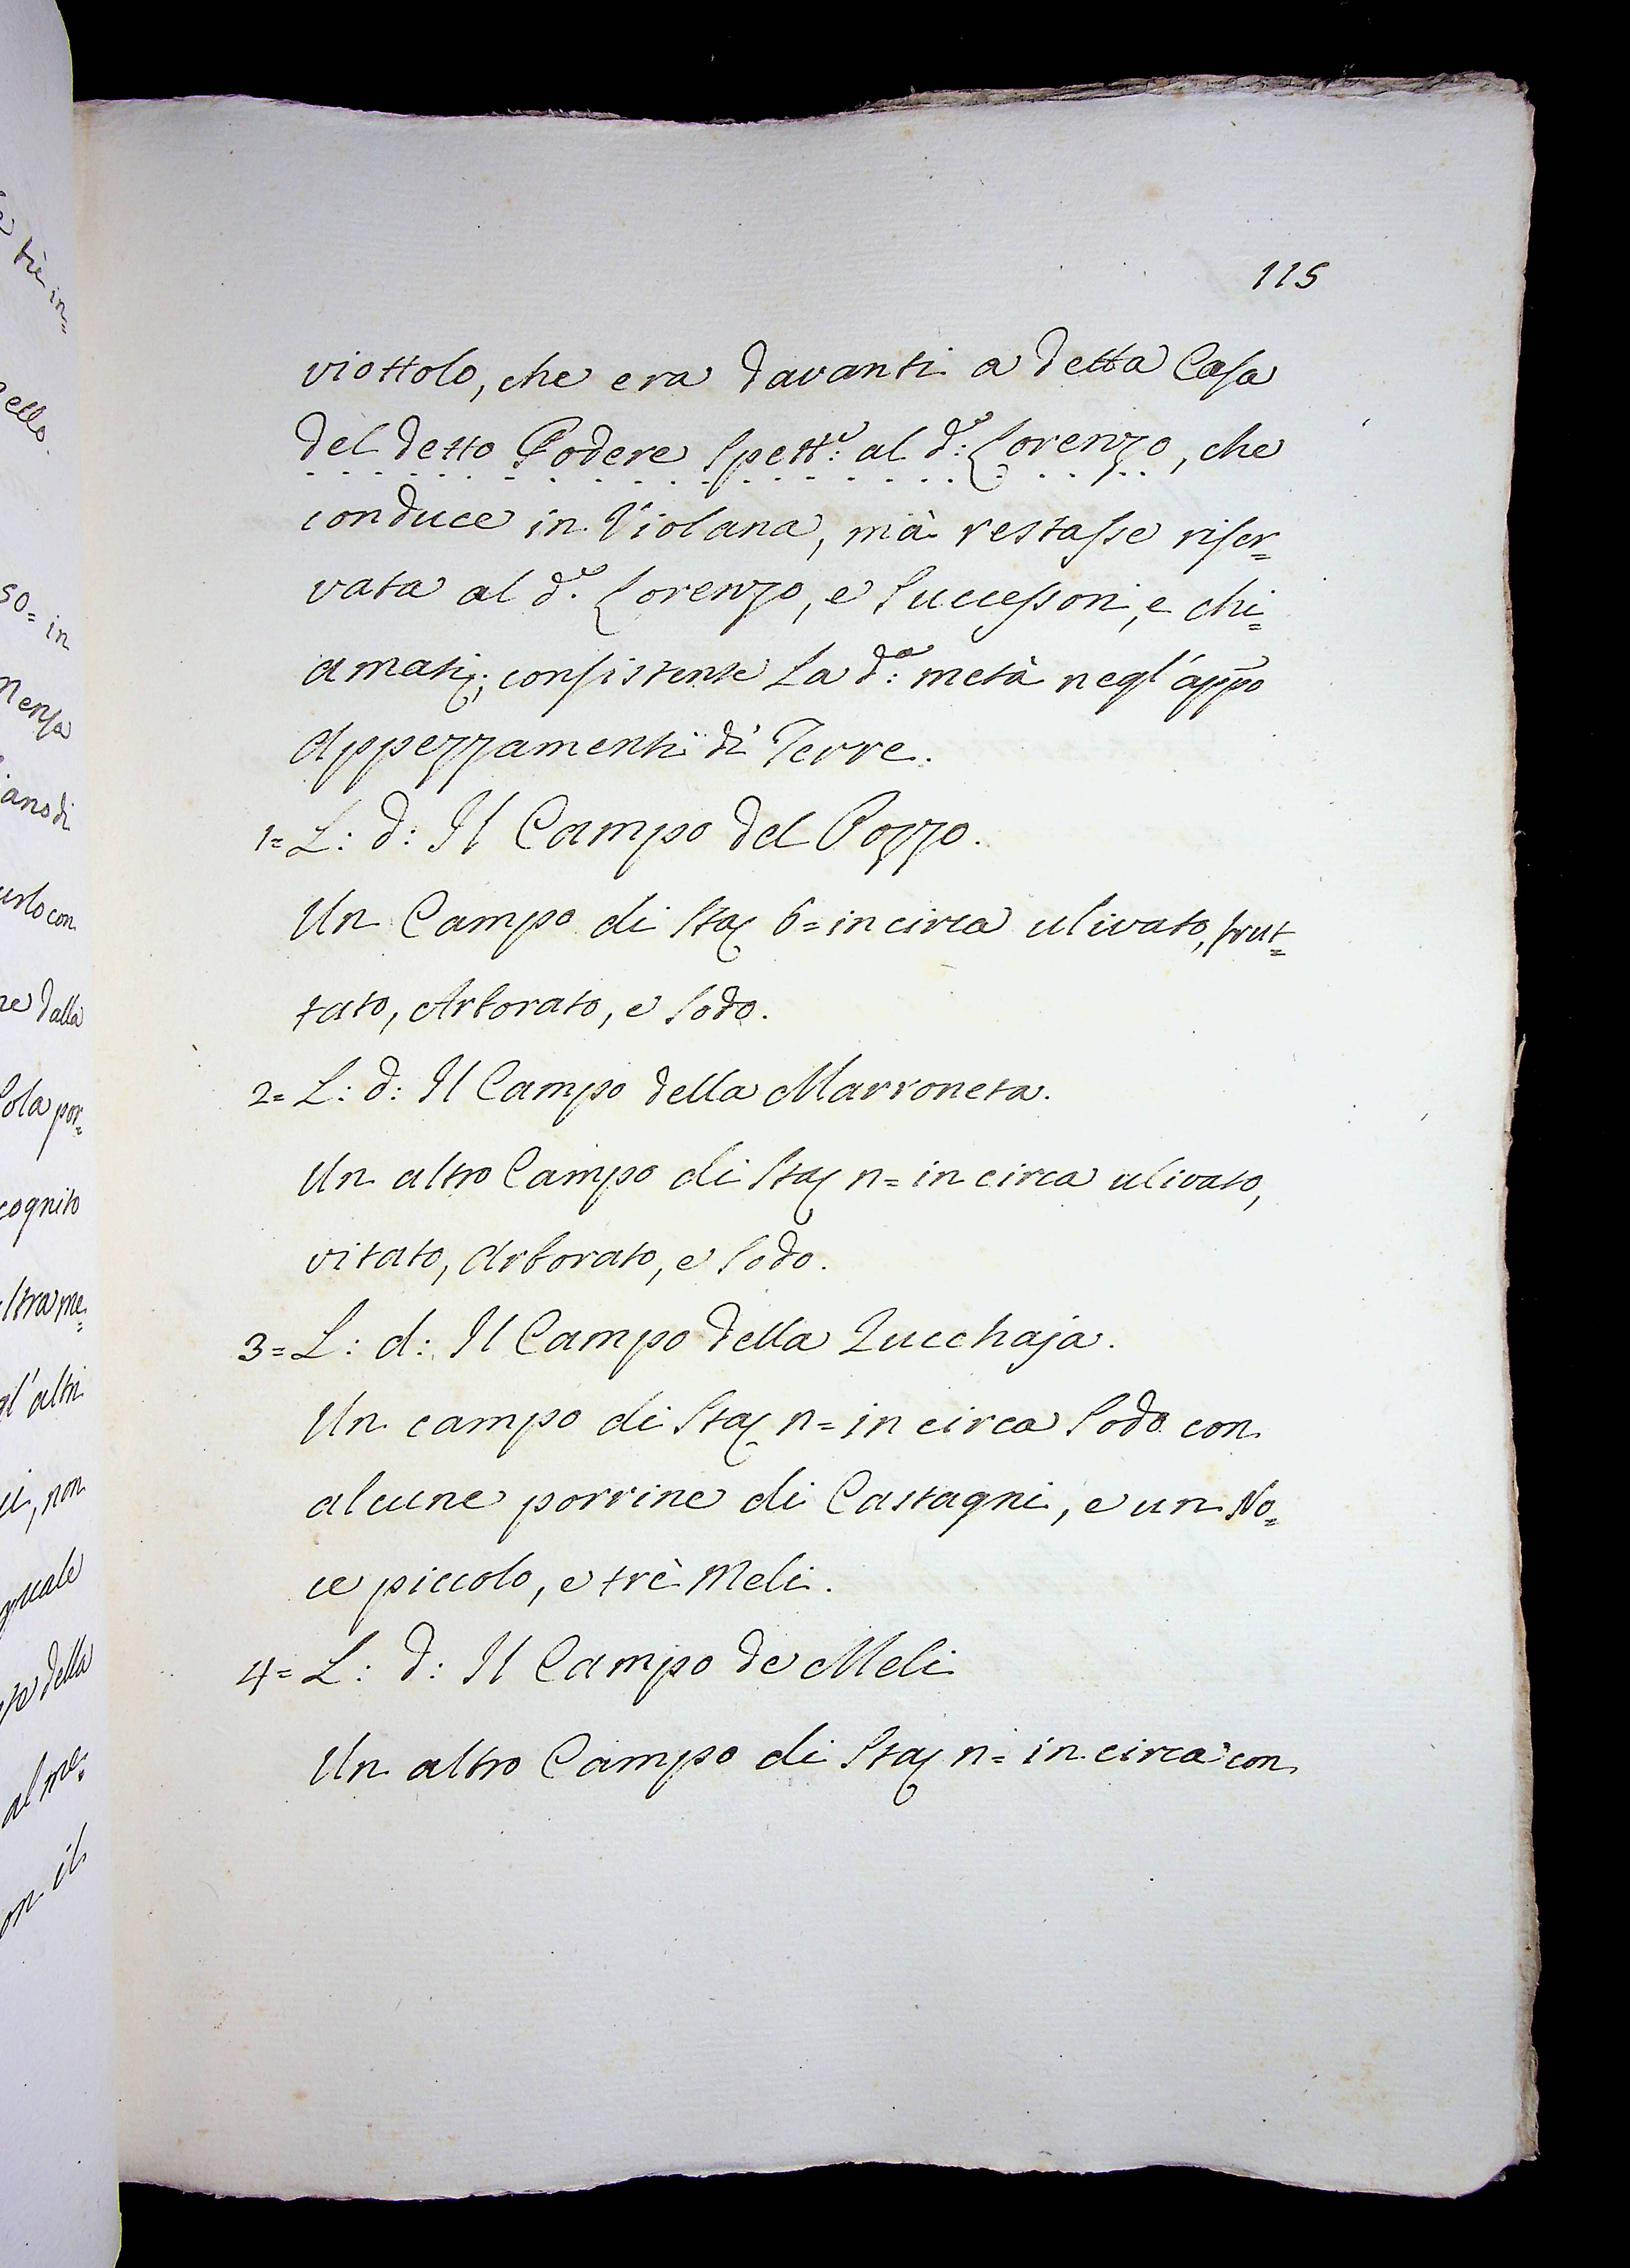 115
viottolo, che era davanti a detta Casa
del detto Podere Spett.e: al d.o: Lorenzo, che
conduce in Violana, mà restasse riser=
vata al d.o Lorenzo, e Successori, e chi=
amati; consistente La d.a: metà negl'appo
Appezzamenti di Terre.
1= L: d: Il Campo del Pozzo.
Un Campo di Sta 6= in circa ulivato, frut=
tato, Arborato, e Sodo.
2= L: d: Il Campo della Marroneta.
Un altro Campo di Sta n= in circa ulivato,
vitato, Arborato, e Sodo.
3= L: d: Il Campo della Zucchaja.
Un campo di Sta n= in circa Sodo con
alcune porrine di Castagni, e un No=
ce piccolo, e trè Meli.
4= L: d: Il Campo de Meli
Un altro Campo di Sta n= in circa con
tre in=
ello.
so= in
Mensa
ano di
urlo con
ne dalla
Sola por=
cognito
ltra me=
gl'altri
ii, non
quale
della
al me=
on il